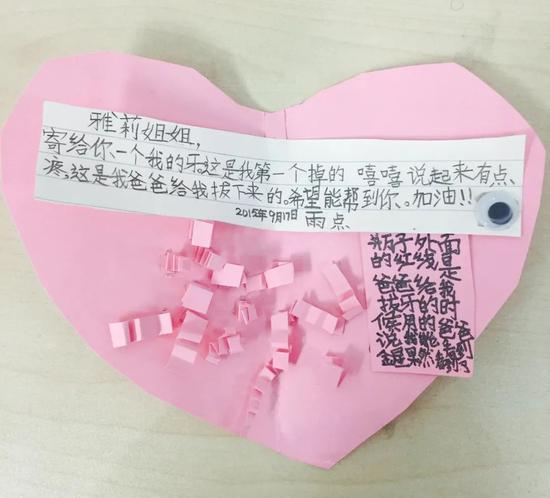 雅莉姐姐,
寄给你一个我的牙,这是我第一个掉的 嘻嘻说起来有点
疼,这是我爸爸给我拔下来的。希望能帮到你。加油!!
2015年9月17日 雨点
瓶子外面
的红线是
爸爸给我
拔牙的时
候用的爸爸
说
果然
了